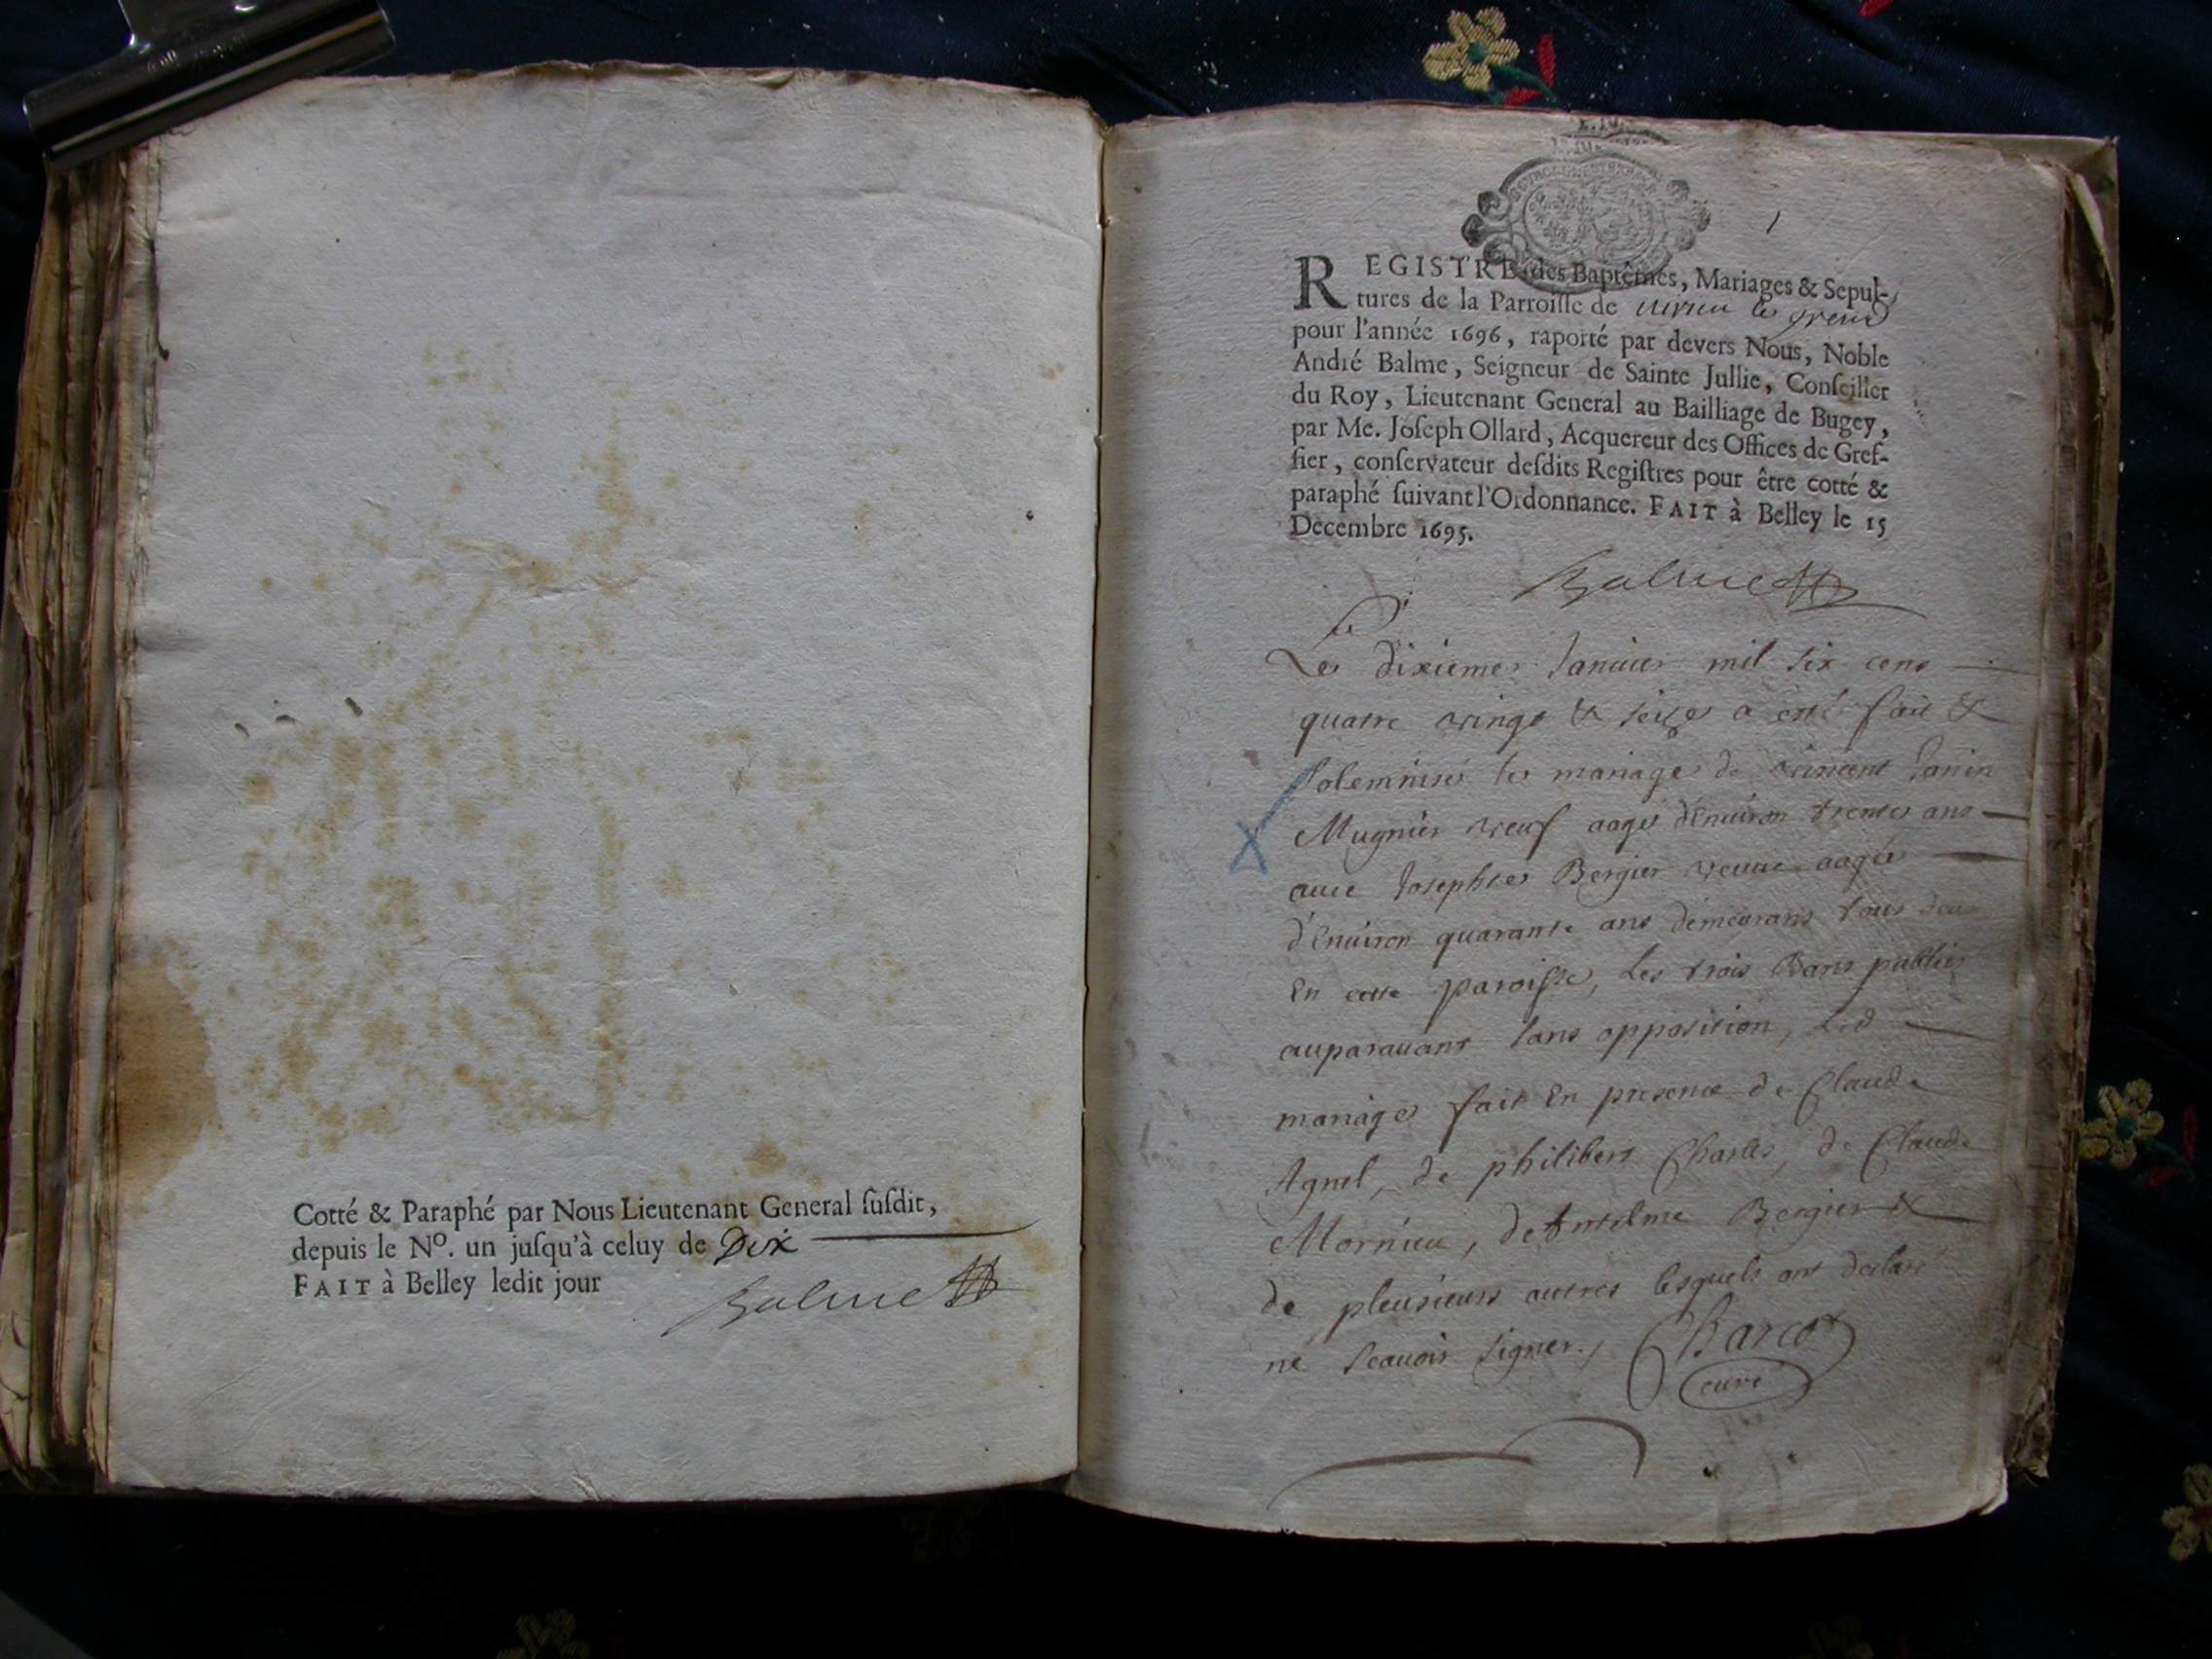 Cotté & Paraphé par Nous Lieutenant General ſuſdit,
depuis le Nº. un juſqu'à celuy de Dix
FAIT à Belley ledit jour
Balme
1
REGISTRE des Baptêmes, Mariages & Sepul-
tures de la Parroiſſe de virieu le grand
pour l'année 1696, raporté par devers Nous, Noble
André Balme, Seigneur de Sainte Jullie, Conſeiller
du Roy, Lieutenant General au Bailliage de Bugey,
par Me. Joſeph Ollard, Acquereur des Offices de Gref-
fier, conſervateur deſdits Regiſtres pour être cotté &
paraphé ſuivant l'Ordonnance. FAIT à Belley le 15
Decembre 1695.
Balme
Le dixieme Januier mil six cens
quatre vingt & seize a esté fait &
solemnisé le mariage de vincent Janin
Mugnier veuf aagé d'Enuiron trente ans
auec Josephte Bergier veuue aagée
d'Enuiron quarante ans demeurans tous deux
En cette paroisse, les trois Bans publiés
auparauant sans opposition, led
mariage fait En presence de Claude
Agnel, de philibert Charles, de Claude
Mornieu, de Antelme Bergier &
de pleusieurs autres lesquels ont declaré
ne scauoir signer./ Charcot
curé